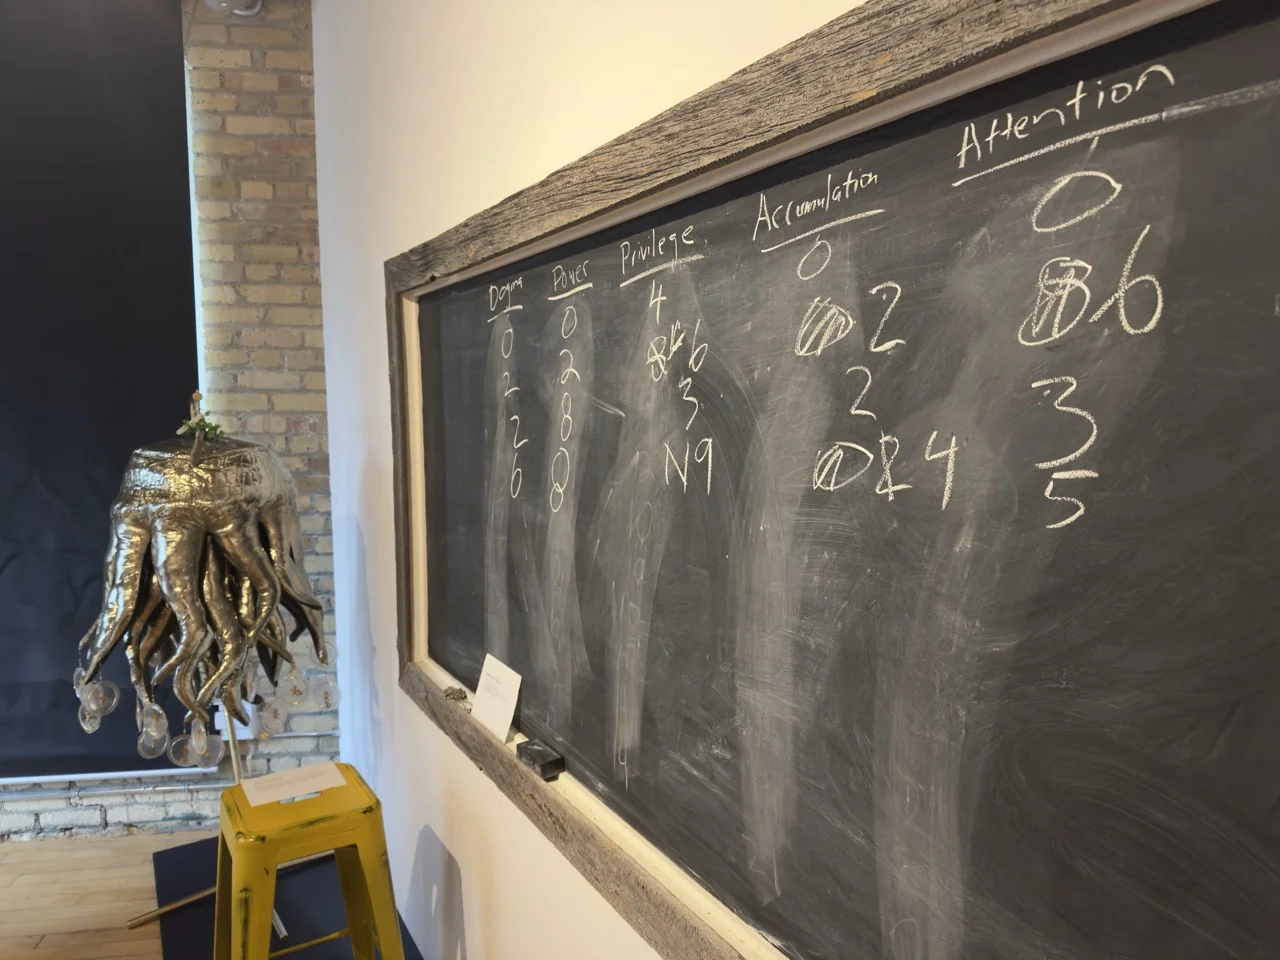 Dogma Power Privilege Accumulation Attention
0 0 4 0 0
2 2 6 2 6
2 8 3 2 3
6 N9 4 5